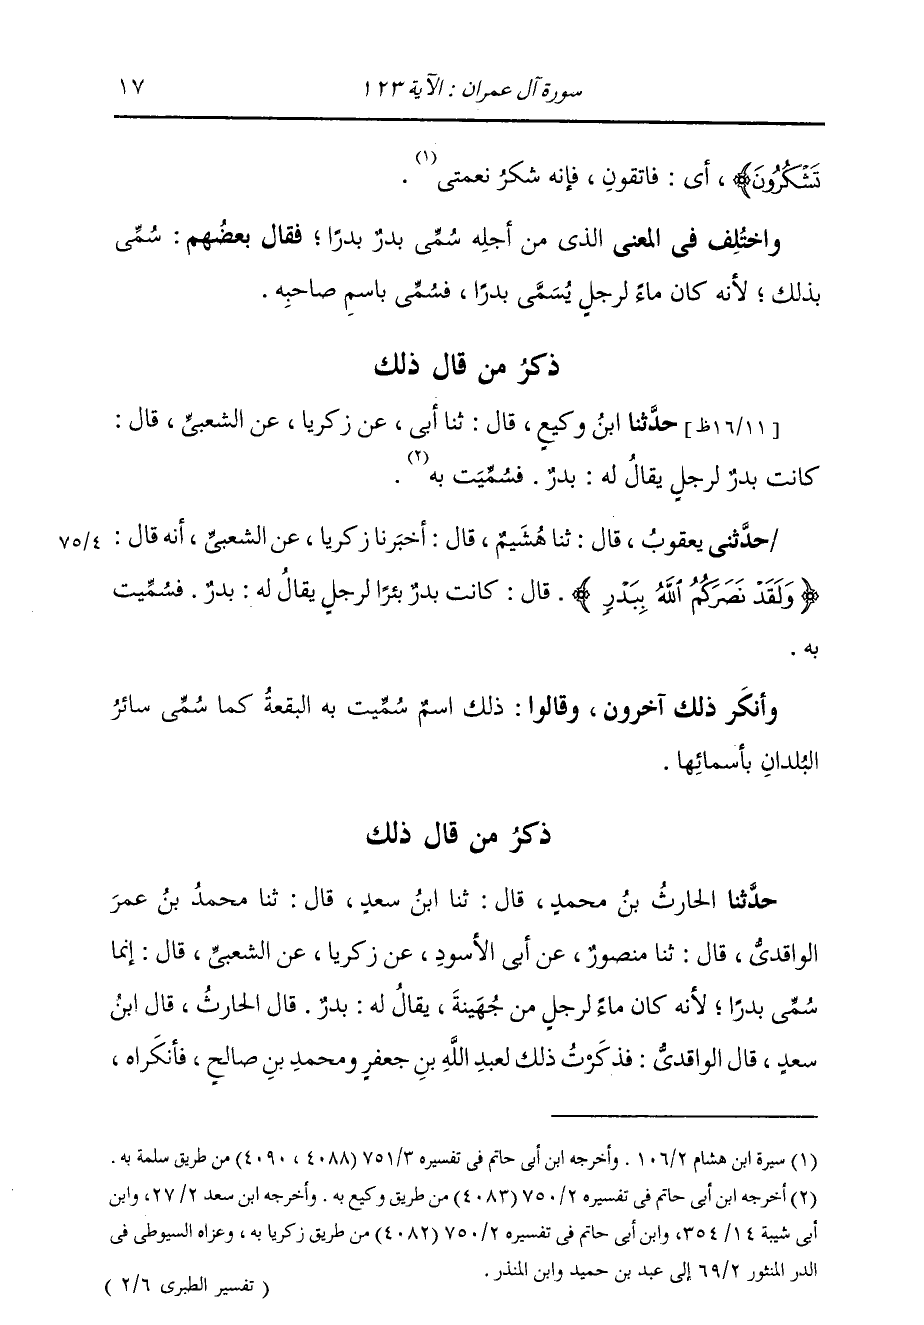 سورة آل عمران : الآية ١٢٣ ١٧
تَشْكُرُونَ﴾ ، أى : فاتقونِ ، فإنه شكرُ نعمتى(١) .
واختُلِف فى المعنى الذى من أجلِه سُمِّى بدرٌ بدرًا ؛ فقال بعضُهم : سُمِّى
بذلك ؛ لأنه كان ماءً لرجلٍ يُسَمَّى بدرًا ، فسُمِّى باسمِ صاحبِه .
ذكرُ من قال ذلك
[١٦/١١ظ] حدَّثنا ابنُ وكيعٍ ، قال : ثنا أبى ، عن زكريا ، عن الشعبىِّ ، قال :
كانت بدرٌ لرجلٍ يقالُ له : بدرٌ . فسُمِّيَت به(٢) .
/حدَّثنى يعقوبُ ، قال : ثنا هُشَيمٌ ، قال : أخبَرنا زكريا ، عن الشعبىِّ ، أنه قال : ٧٥/٤
﴿ وَلَقَدْ نَصَرَكُمُ ٱللَّهُ بِبَدْرٍ ﴾ . قال : كانت بدرٌ بئرًا لرجلٍ يقالُ له : بدرٌ . فسُمِّيت
به .
وأنكَر ذلك آخرون ، وقالوا : ذلك اسمٌ سُمِّيت به البقعةُ كما سُمِّى سائرُ
البُلدانِ بأسمائِها .
ذكرُ من قال ذلك
حدَّثنا الحارثُ بنُ محمدٍ ، قال : ثنا ابنُ سعدٍ ، قال : ثنا محمدُ بنُ عمرَ
الواقدىُّ ، قال : ثنا منصورٌ ، عن أبى الأسودِ ، عن زكريا ، عن الشعبىِّ ، قال : إنما
سُمِّى بدرًا ؛ لأنه كان ماءً لرجلٍ من جُهَينةَ ، يقالُ له : بدرٌ . قال الحارثُ ، قال ابنُ
سعدٍ ، قال الواقدىُّ : فذكَرْتُ ذلك لعبدِ اللَّهِ بنِ جعفرٍ ومحمدِ بنِ صالحٍ ، فأنكَراه ،
(١) سيرة ابن هشام ١٠٦/٢ . وأخرجه ابن أبى حاتم فى تفسيره ٧٥١/٣ (٤٠٨٨ ، ٤٠٩٠) من طريق سلمة به .
(٢) أخرجه ابن أبى حاتم فى تفسيره ٧٥٠/٢ (٤٠٨٣) من طريق وكيع به . وأخرجه ابن سعد ٢٧/٢، وابن
أبى شيبة ٣٥٤/١٤، وابن أبى حاتم فى تفسيره ٧٥٠/٢ (٤٠٨٢) من طريق زكريا به ، وعزاه السيوطى فى
الدر المنثور ٦٩/٢ إلى عبد بن حميد وابن المنذر .
( تفسير الطبرى ٢/٦ )